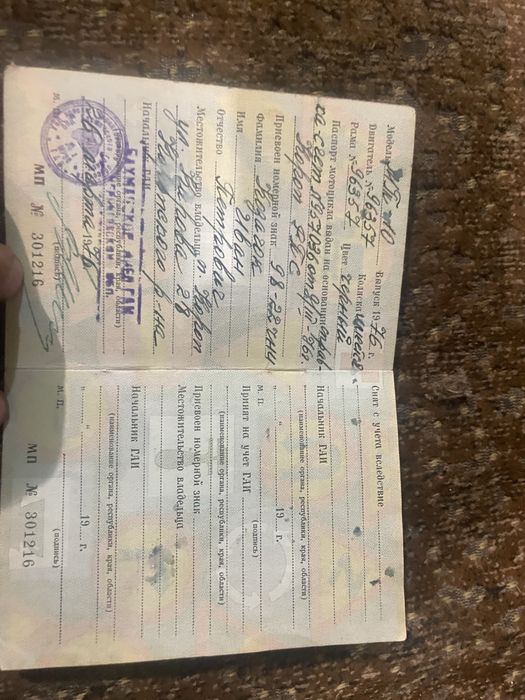 Модель МТ-10 Выпуск 1976 г.
Двигатель № 96357 Коляска имеется
Рама № 96357 Цвет черный
Паспорт мотоцикла выдан на основании справ-
ка счет
Короп
Присвоен номерной знак 98-22 ччн
Фамилия
Имя Иван
Отчество Петрович
Местожительство владельца п. Короп
ул. Кирова 28
Коропского р-на
Начальник ГАИ
БАХМАЧСКОЕ
(наименование органа, республики, края, области)
М. П.
(подпись)
МП № 301216
Снят с учета вследствие
Начальник ГАИ
(наименование органа, республики, края, области)
М. П. „ “ 19 г.
(подпись)
Принят на учет ГАИ
(наименование органа, республики, края, области)
Присвоен номерной знак
Местожительство владельца
Начальник ГАИ
(наименование органа, республики, края, области)
М. П. „ “ 19 г.
(подпись)
МП № 301216